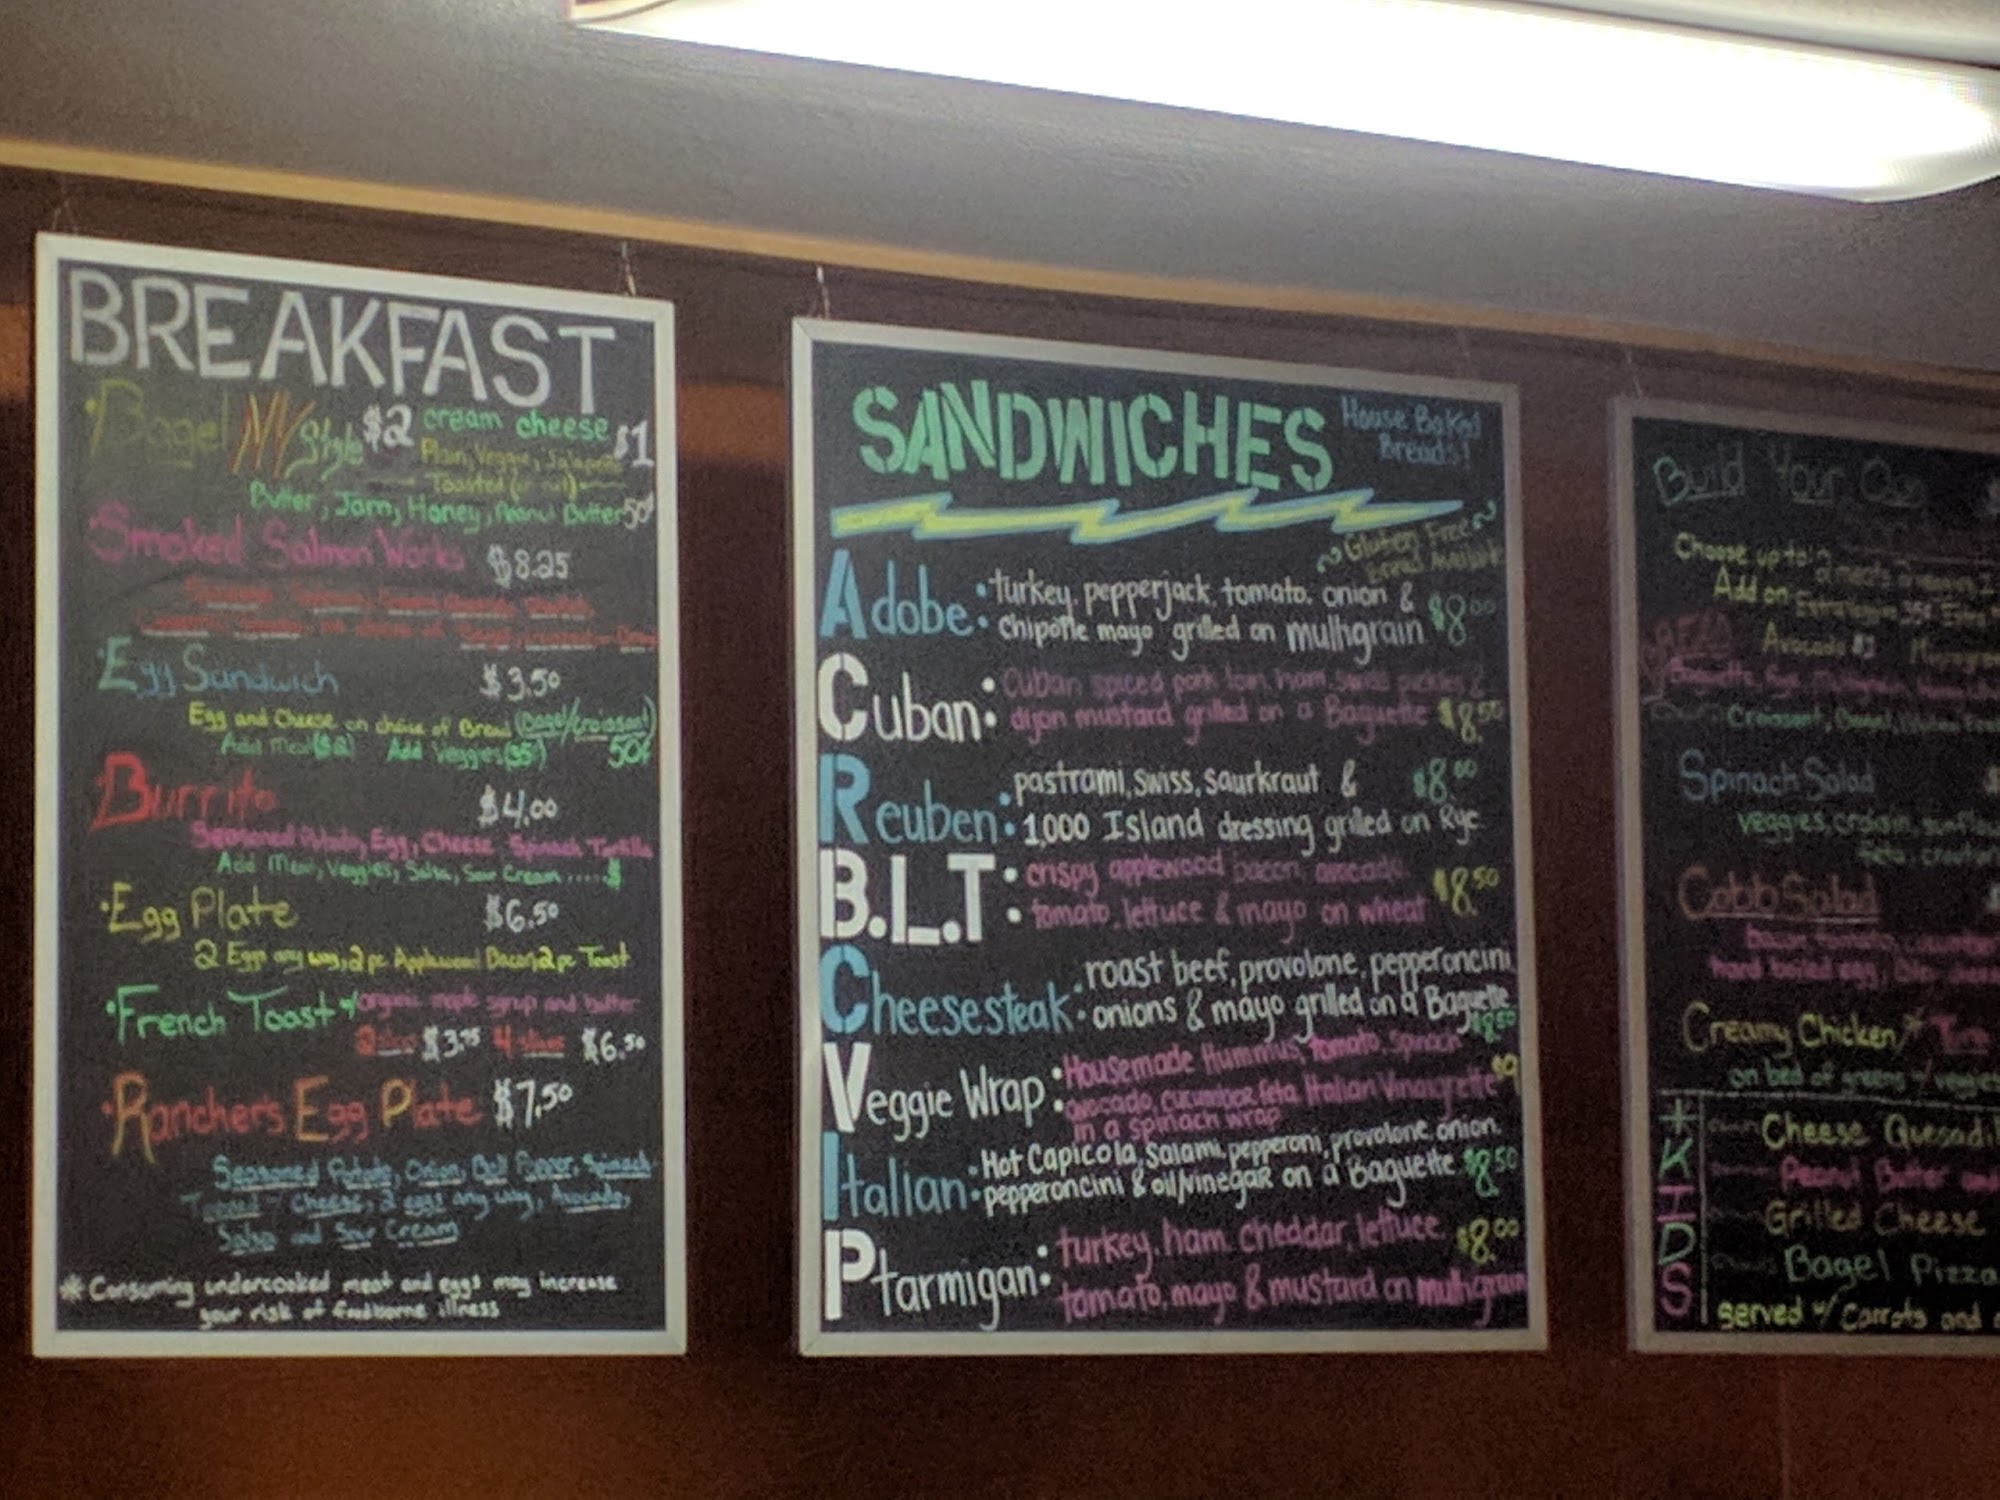 BREAKFAST
Bagel NY Style $2 cream cheese $1
Plain, Veggie, Jalapeño
Toasted (or not)
Butter, Jam, Honey, Peanut Butter 50¢
Smoked Salmon Works $8.25
Egg Sandwich $3.50
Egg and Cheese on choice of Bread (Bagel/Croissant)
Add Meat ($2) Add Veggies (35¢) 50¢
Burrito $4.00
Seasoned Potato, Egg, Cheese Spinach Tortilla
Add Meat, Veggies, Salsa, Sour Cream ..... $
Egg Plate $6.50
2 Eggs any way, 2 pc Applewood Bacon, 2 pc Toast
French Toast w/ organic maple syrup and butter
$3.75 4 slices $6.50
Rancher's Egg Plate $7.50
Seasoned Potato, Onion, Bell Pepper, Spinach
Topped w/ Cheese, 2 eggs any way, Avocado,
Salsa and Sour Cream
* Consuming undercooked meat and eggs may increase
your risk of foodborne illness
SANDWICHES
House Baked
Breads!
~ Gluten Free ~
Bread Available
Adobe: turkey, pepperjack, tomato, onion &
chipotle mayo grilled on multigrain $8.00
Cuban: Cuban spiced pork loin, ham, swiss pickles &
dijon mustard grilled on a Baguette $8.50
Reuben: pastrami, swiss, saurkraut & $8.00
1,000 Island dressing grilled on Rye
B.L.T: crispy applewood bacon, avocado,
tomato, lettuce & mayo on wheat $8.50
Cheesesteak: roast beef, provolone, pepperoncini
onions & mayo grilled on a Baguette
$8.50
Veggie Wrap: Housemade Hummus, tomato, spinach
avocado, cucumber, feta, Italian Vinaigrette $9
in a spinach wrap
Italian: Hot Capicola, Salami, pepperoni, provolone, onion,
pepperoncini & oil/vinegar on a Baguette $8.50
Ptarmigan: turkey, ham, cheddar, lettuce $8.00
tomato, mayo & mustard on multigrain
Build Your Own
Choose up to
Add on Extra Veggies 35¢ Extra
Avocado $1
Croissant, Bagel,
Spinach Salad
veggies,
feta,
Cobb Salad
bacon, tomato, cucumber
hard boiled egg,
Creamy Chicken
on bed of greens w/ veggies
* KIDS
Cheese Quesadil
Peanut Butter and
Grilled Cheese
Bagel Pizza
served w/ carrots and